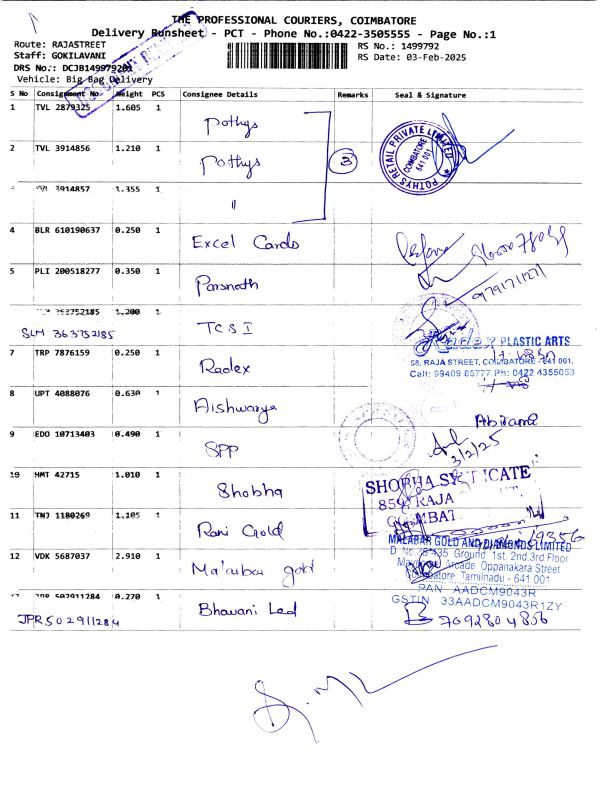 THE PROFESSIONAL COURIERS, COIMBATORE
Delivery Runsheet - PCT - Phone No.:0422-3505555 - Page No.:1
Route: RAJASTREET
RS No.: 1499792
Staff: GOKILAVANI
RS Date: 03-Feb-2025
DRS No.: DCJB149979201
Vehicle: Big Bag Delivery
S No Consignment No Weight PCS Consignee Details Remarks Seal & Signature
1 TVL 2879325 1.605 1 Pothys
2 TVL 3914856 1.210 1 Pothys 3
3914857 1.355 1 "
POTHYS RETAIL PRIVATE LIMITED
COIMBATORE
641 001
4 BLR 610190637 0.250 1 Excel Cards
5 PLI 200518277 0.350 1 Parsnath
9791711271
363752185 1.200 1 TCSI
SLM 363752185
7 TRP 7876159 0.250 1 Radex
Radex PLASTIC ARTS
58, RAJA STREET, COIMBATORE - 641 001.
Call: 99409 85777 Ph: 0422 4355059
8 UPT 4088076 0.630 1 Aishwarya
Abirami
9 EDO 10713403 0.490 1 SPP
3/2/25
10 HMT 42715 1.010 1 Shobha
SHOBHA SYNDICATE
RAJA
11 TNJ 1180269 1.105 1 Rani Gold
MALABAR GOLD AND DIAMONDS LIMITED
12 VDK 5687037 2.910 1 Malabar gold
Ground 1st. 2nd.3rd Floor
Arcade Oppanakara Street
Coimbatore Tamilnadu - 641 001
PAN AADCM9043R
GSTIN 33AADCM9043R1ZY
JPR 502911284 0.270 1 Bhavani Led
JPR502911284
7092804856